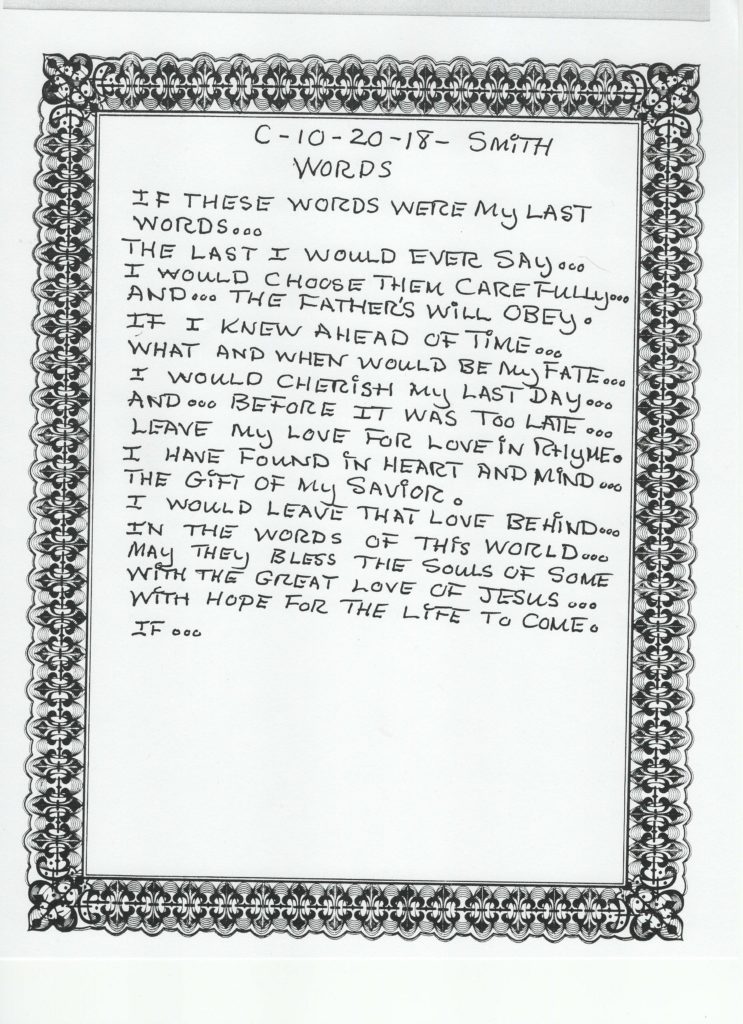 C-10-20-18- SMITH
WORDS
IF THESE WORDS WERE MY LAST
WORDS...
THE LAST I WOULD EVER SAY...
I WOULD CHOOSE THEM CAREFULLY...
AND... THE FATHER'S WILL OBEY.
IF I KNEW AHEAD OF TIME...
WHAT AND WHEN WOULD BE MY FATE...
I WOULD CHERISH MY LAST DAY...
AND... BEFORE IT WAS TOO LATE...
LEAVE MY LOVE FOR LOVE IN RHYME.
I HAVE FOUND IN HEART AND MIND...
THE GIFT OF MY SAVIOR.
I WOULD LEAVE THAT LOVE BEHIND...
IN THE WORDS OF THIS WORLD...
MAY THEY BLESS THE SOULS OF SOME
WITH THE GREAT LOVE OF JESUS...
WITH HOPE FOR THE LIFE TO COME.
IF...